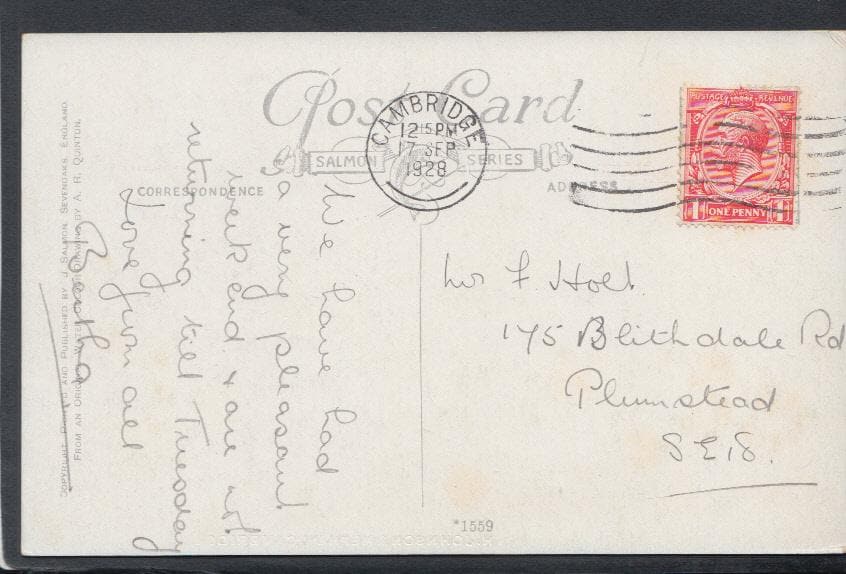 Post Card
SALMON SERIES
CORRESPONDENCE
ADDRESS
CAMBRIDGE
12 15 PM
17 SEP
1928
POSTAGE REVENUE
1 ONE PENNY 1
We have had
a very pleasant
week end & are not
returning till Tuesday
Love from all
Bertha
Mr F. Holt.
175 Blithdale Rd
Plumstead
S.E.18.
*1559
COPYRIGHT. PRINTED AND PUBLISHED BY J. SALMON, SEVENOAKS, ENGLAND.
FROM AN ORIGINAL WATER COLOUR DRAWING BY A. R. QUINTON.